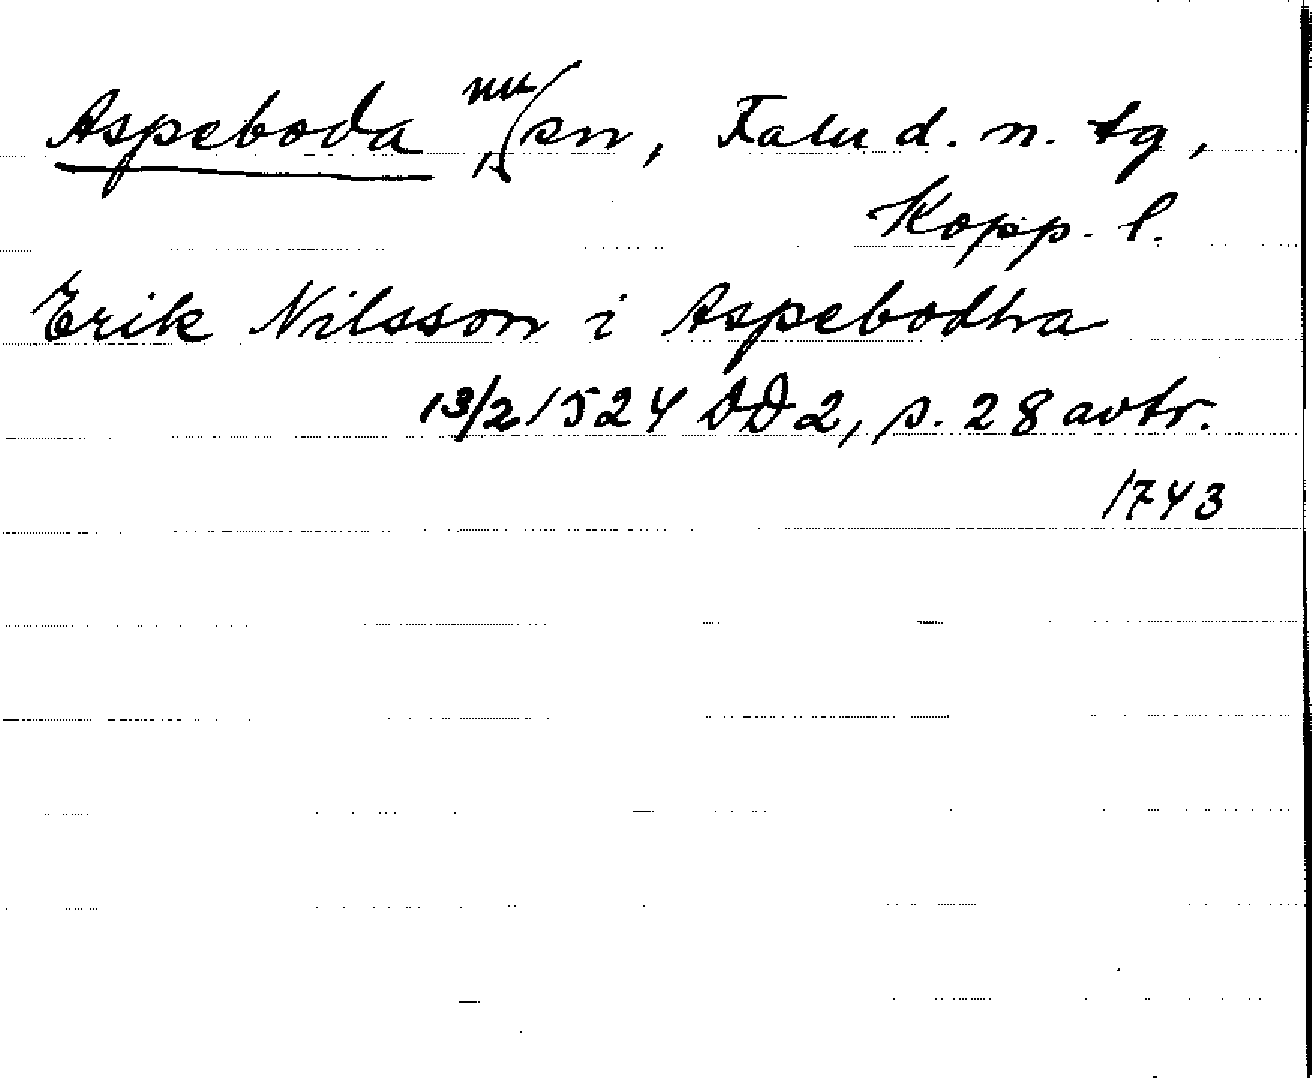 Aspeboda, nu sn, Falu d. n. tg,
Kopp. l.
Erik Nilsson i Aspebodha
13/2 1524 DD2, s. 28 avtr.
1743